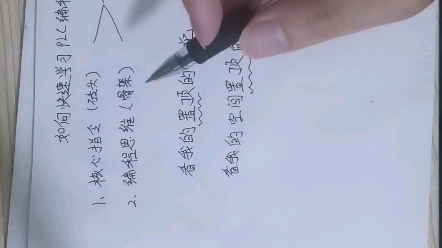 如何快速学习PLC编程
1、核心指令（砖头）
2、编程思维（骨架）
看我的置顶的
看我的空间置顶